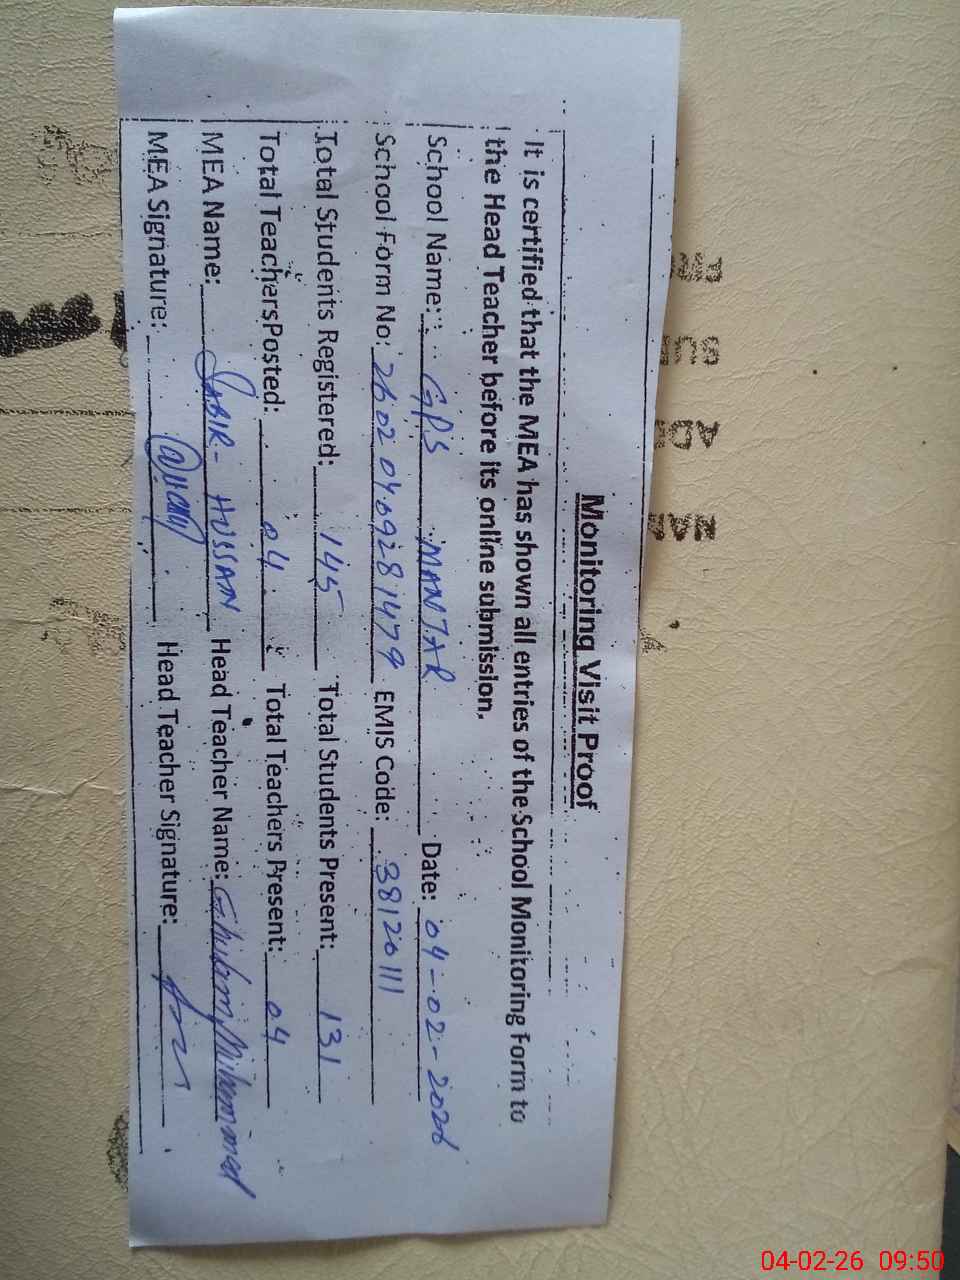 Monitoring Visit Proof
It is certified that the MEA has shown all entries of the School Monitoring Form to
the Head Teacher before its online submission.
School Name: GPS MANJAR Date: 04-02-2026
School Form No: 2602040928 1479 EMIS Code: 38120111
Total Students Registered: 145 Total Students Present: 131
Total Teachers Posted: 04 Total Teachers Present: 04
MEA Name: SABIR- HUSSAIN Head Teacher Name: Ghulam Muhammad
MEA Signature: Head Teacher Signature:
04-02-26 09:50